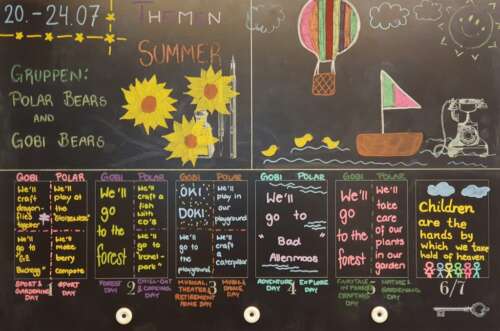 20. - 24.07
Themen
SUMMER
GRUPPEN:
POLAR BEARS
AND
GOBI BEARS
GOBI POLAR
We'll craft dragon-flies together
We'll play at the
We'll go to
We'll make berry compote
SPORT & GARDENING DAY
1
SPORT DAY
GOBI POLAR
We'll go to the forest
We'll craft a fish with CD's
We'll go to
FOREST DAY
2
CHILL-OUT & CRAFTING DAY
GOBI POLAR
OKI DOKI
We'll play in our playground
We'll go to the playground
We'll craft a caterpillar
MUSICAL THEATER RETIREMENT HOME DAY
3
MUSIC & DANCE DAY
GOBI POLAR
We'll go to "Bad Allenmoos"
ADVENTURE DAY
4
EXPLORE DAY
GOBI POLAR
We'll go to the forest
We'll take care of our plants in our garden
FAIRYTALE IN FOREST CRAFTING DAY
5
NATURE & GARDENING DAY
Children are the hands by which we take hold of heaven
6/7